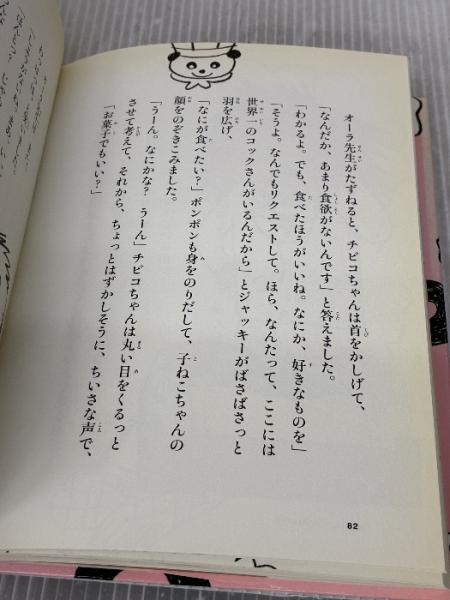 オーラ先生がたずねると、チビコちゃんは首をかしげて、
「なんだか、あまり食欲がないんです」と答えました。
「わかるよ。でも、食べたほうがいいね。なにか、好きなものを」
「そうよ。なんでもリクエストして。ほら、なんたって、ここには
世界一のコックさんがいるんだから」とジャッキーがばさばさっと
羽を広げ、
「なにが食べたい?」ポンポンも身をのりだして、子ねこちゃんの
顔をのぞきこみました。
「うーん。なにかな? うーん」チビコちゃんは丸い目をくるっと
させて考えて、それから、ちょっとはずかしそうに、ちいさな声で、
「お菓子でもいい?」
82